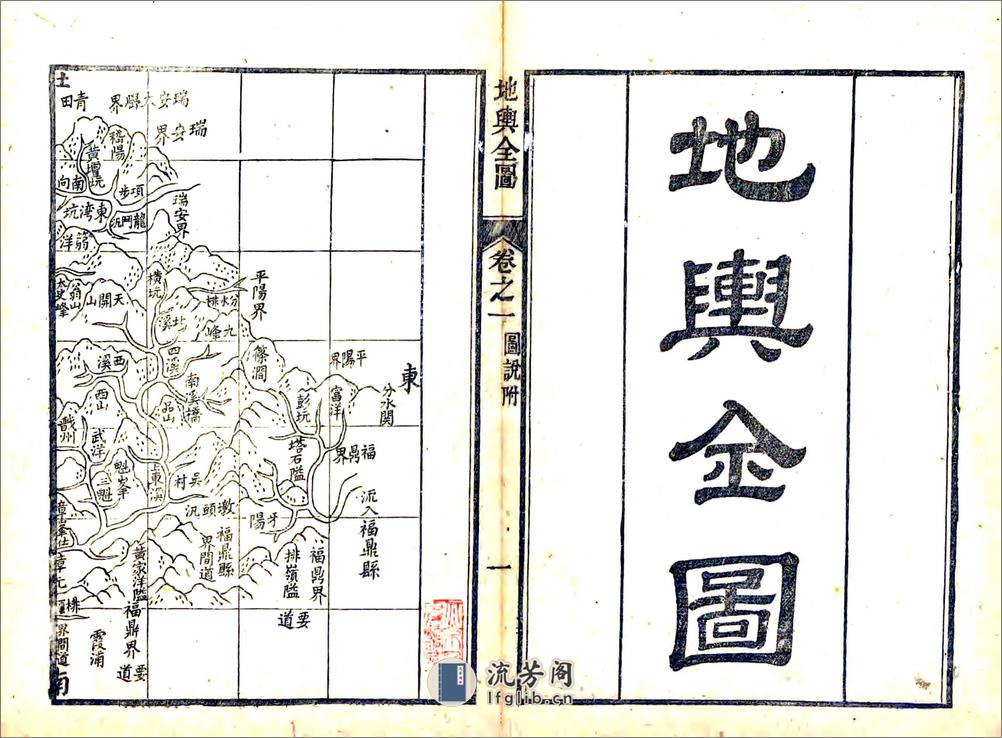 地輿全圖
地輿全圖
卷之一
圖說附
一
東
分水関
平陽界
富洋
福鼎界
流入福鼎縣
彭坑
塔石隘
福鼎界
排嶺隘
要道
篠澗
平陽界
分水排
九峰
牙陽
墩頭汛
福鼎縣界間道
吳村
瑞安界
瑞安界
瑞安
界
青田
龍鬥汛
項步
東湾坑
南向
黃壇坑
嵇陽
翁洋
橫坑
北溪
四溪
南溪橋
品山
天開山
翁山
太史峰
西溪
西山
武洋
戩州
魁峯
三魁
上東溪
黃家洋隘
福鼎界
要道
霞浦
界間道
南
流芳阁
lfglib.cn